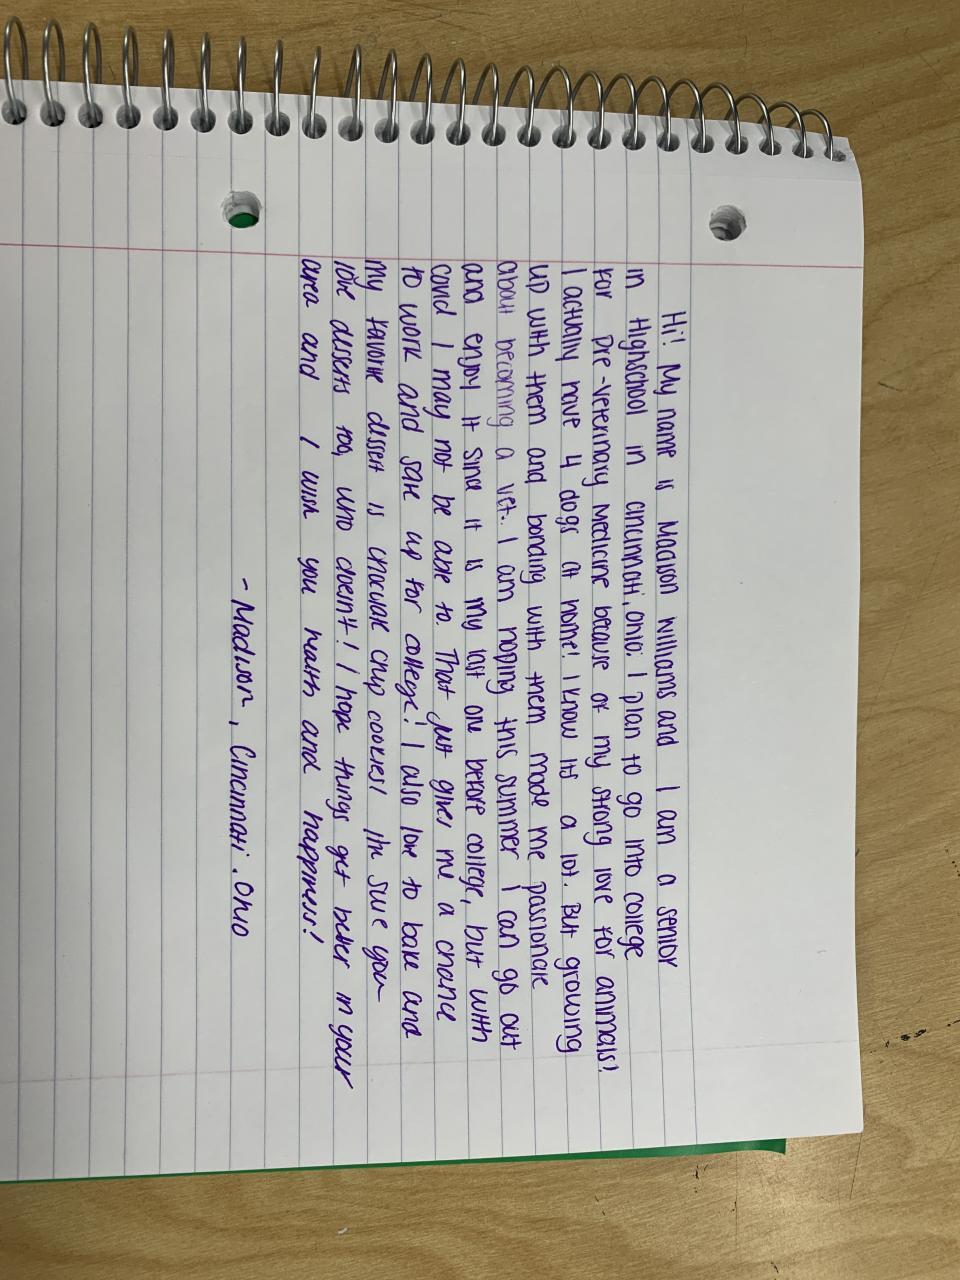 Hi! My name is Madison Williams and I am a senior
in Highschool in cincinnati, ohio. I plan to go into college
for pre-veterinary medicine because of my strong love for animals!
I actually have 4 dogs at home! I know its a lot. But growing
up with them and bonding with them made me passionate
about becoming a vet. I am hoping this summer I can go out
and enjoy it since it is my last one before college, but with
covid I may not be able to. That just gives me a chance
to work and save up for college! I also love to bake and
my favorite dessert is chocolate chip cookies! Im sure you
love desserts too, who doesn't! I hope things get better in your
area and I wish you health and happiness!
- Madison, Cincinnati. Ohio